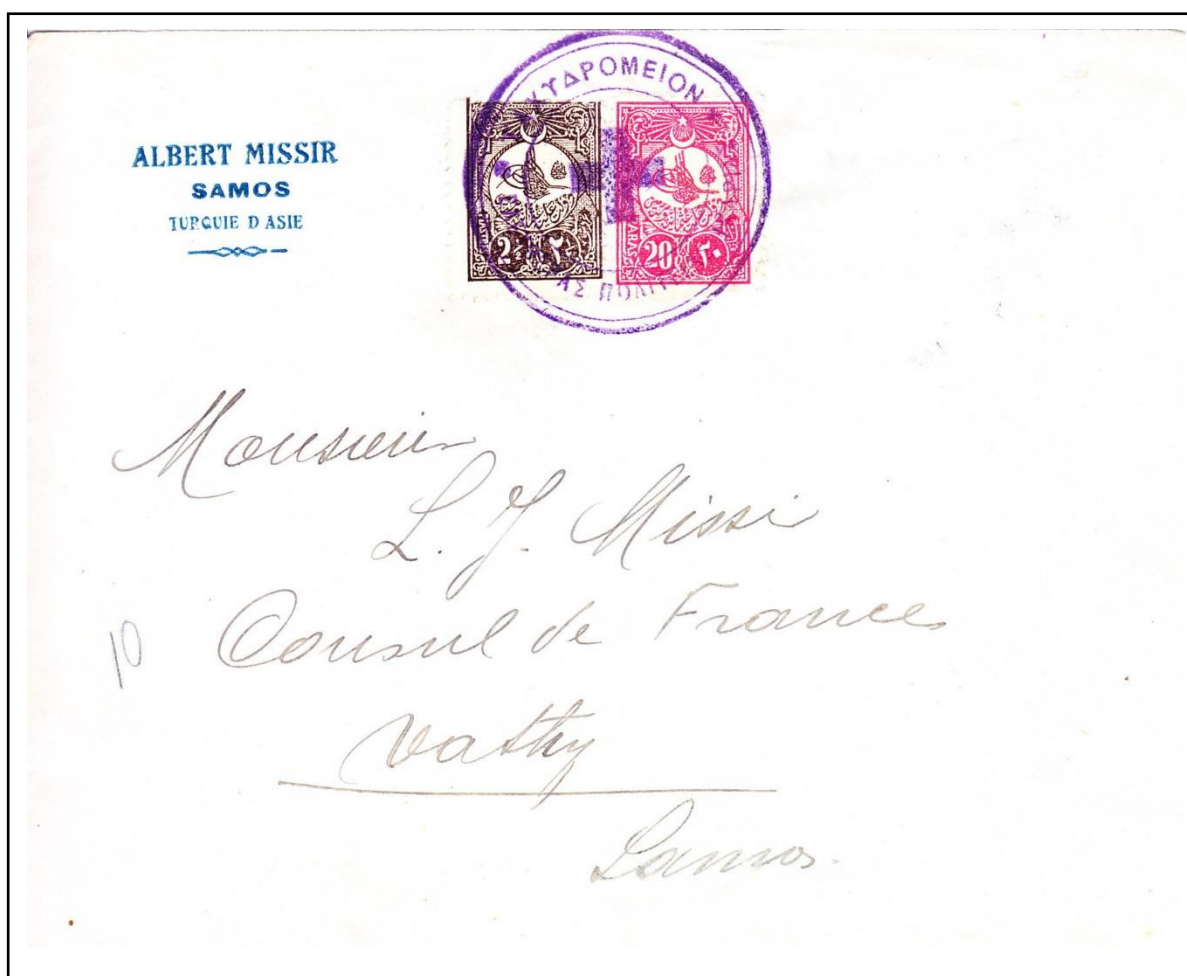 ALBERT MISSIR
SAMOS
TURQUIE D ASIE
ΧΥΔΡΟΜΕΙΟΝ
ΑΣ ΠΟΛΙΤΕ
PARAS 20 ٢٠
Monsieur
L. J. Missir
Consul de France
10
Vathy
Samos.